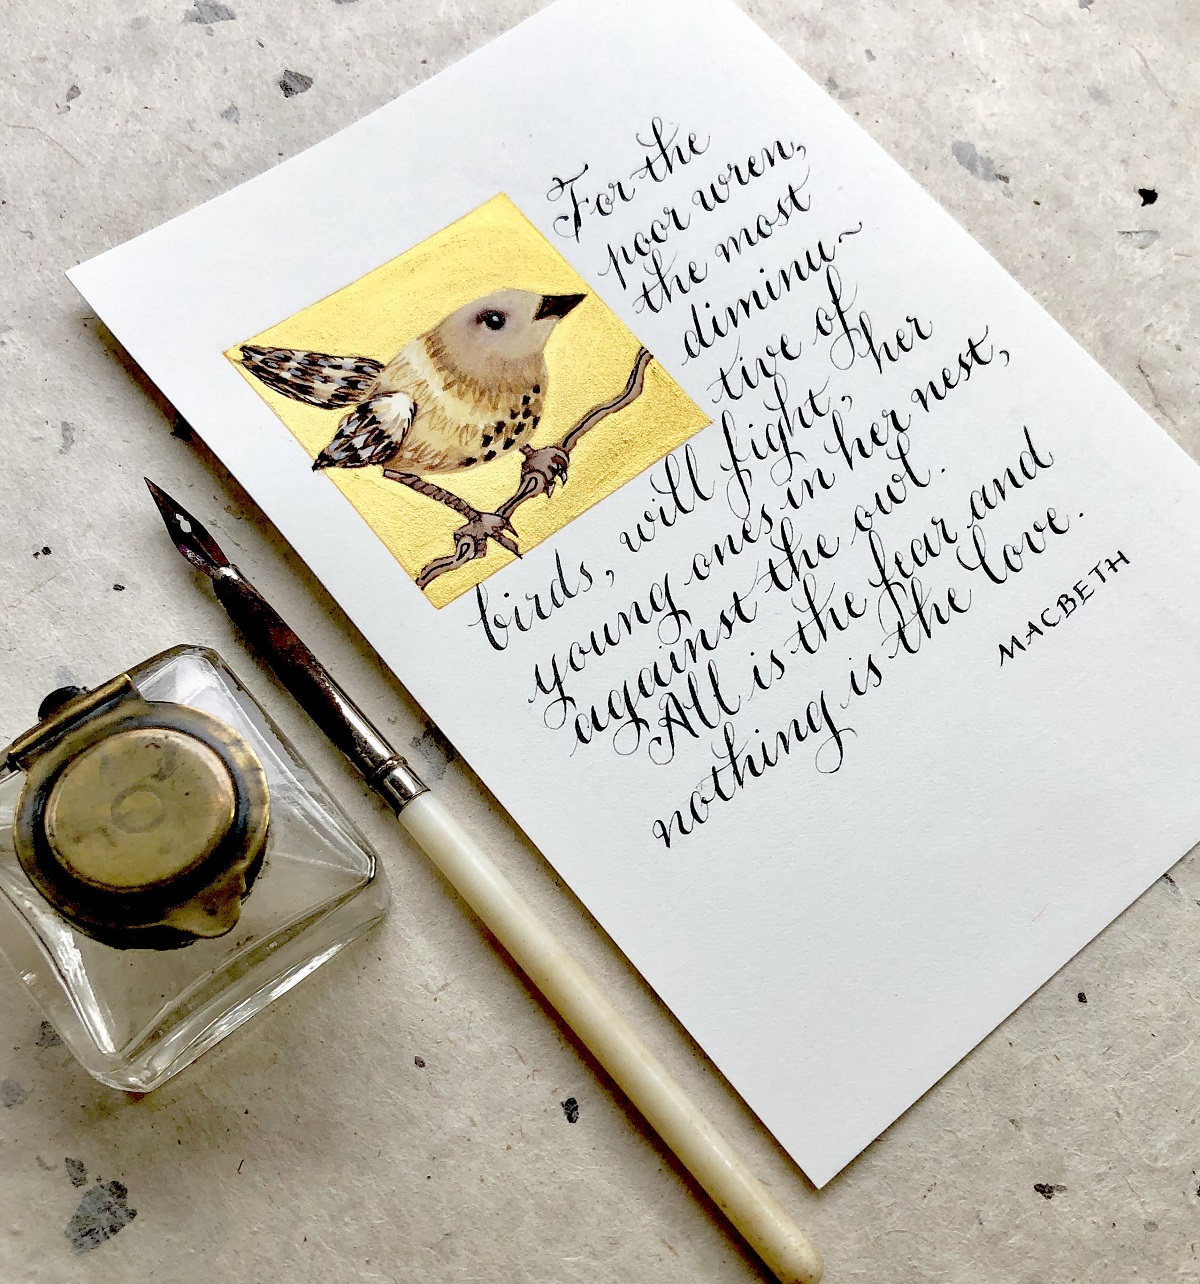 For the
poor wren,
the most
diminu~
tive of
birds, will fight, her
young ones in her nest,
against the owl.
All is the fear and
nothing is the love.
MACBETH